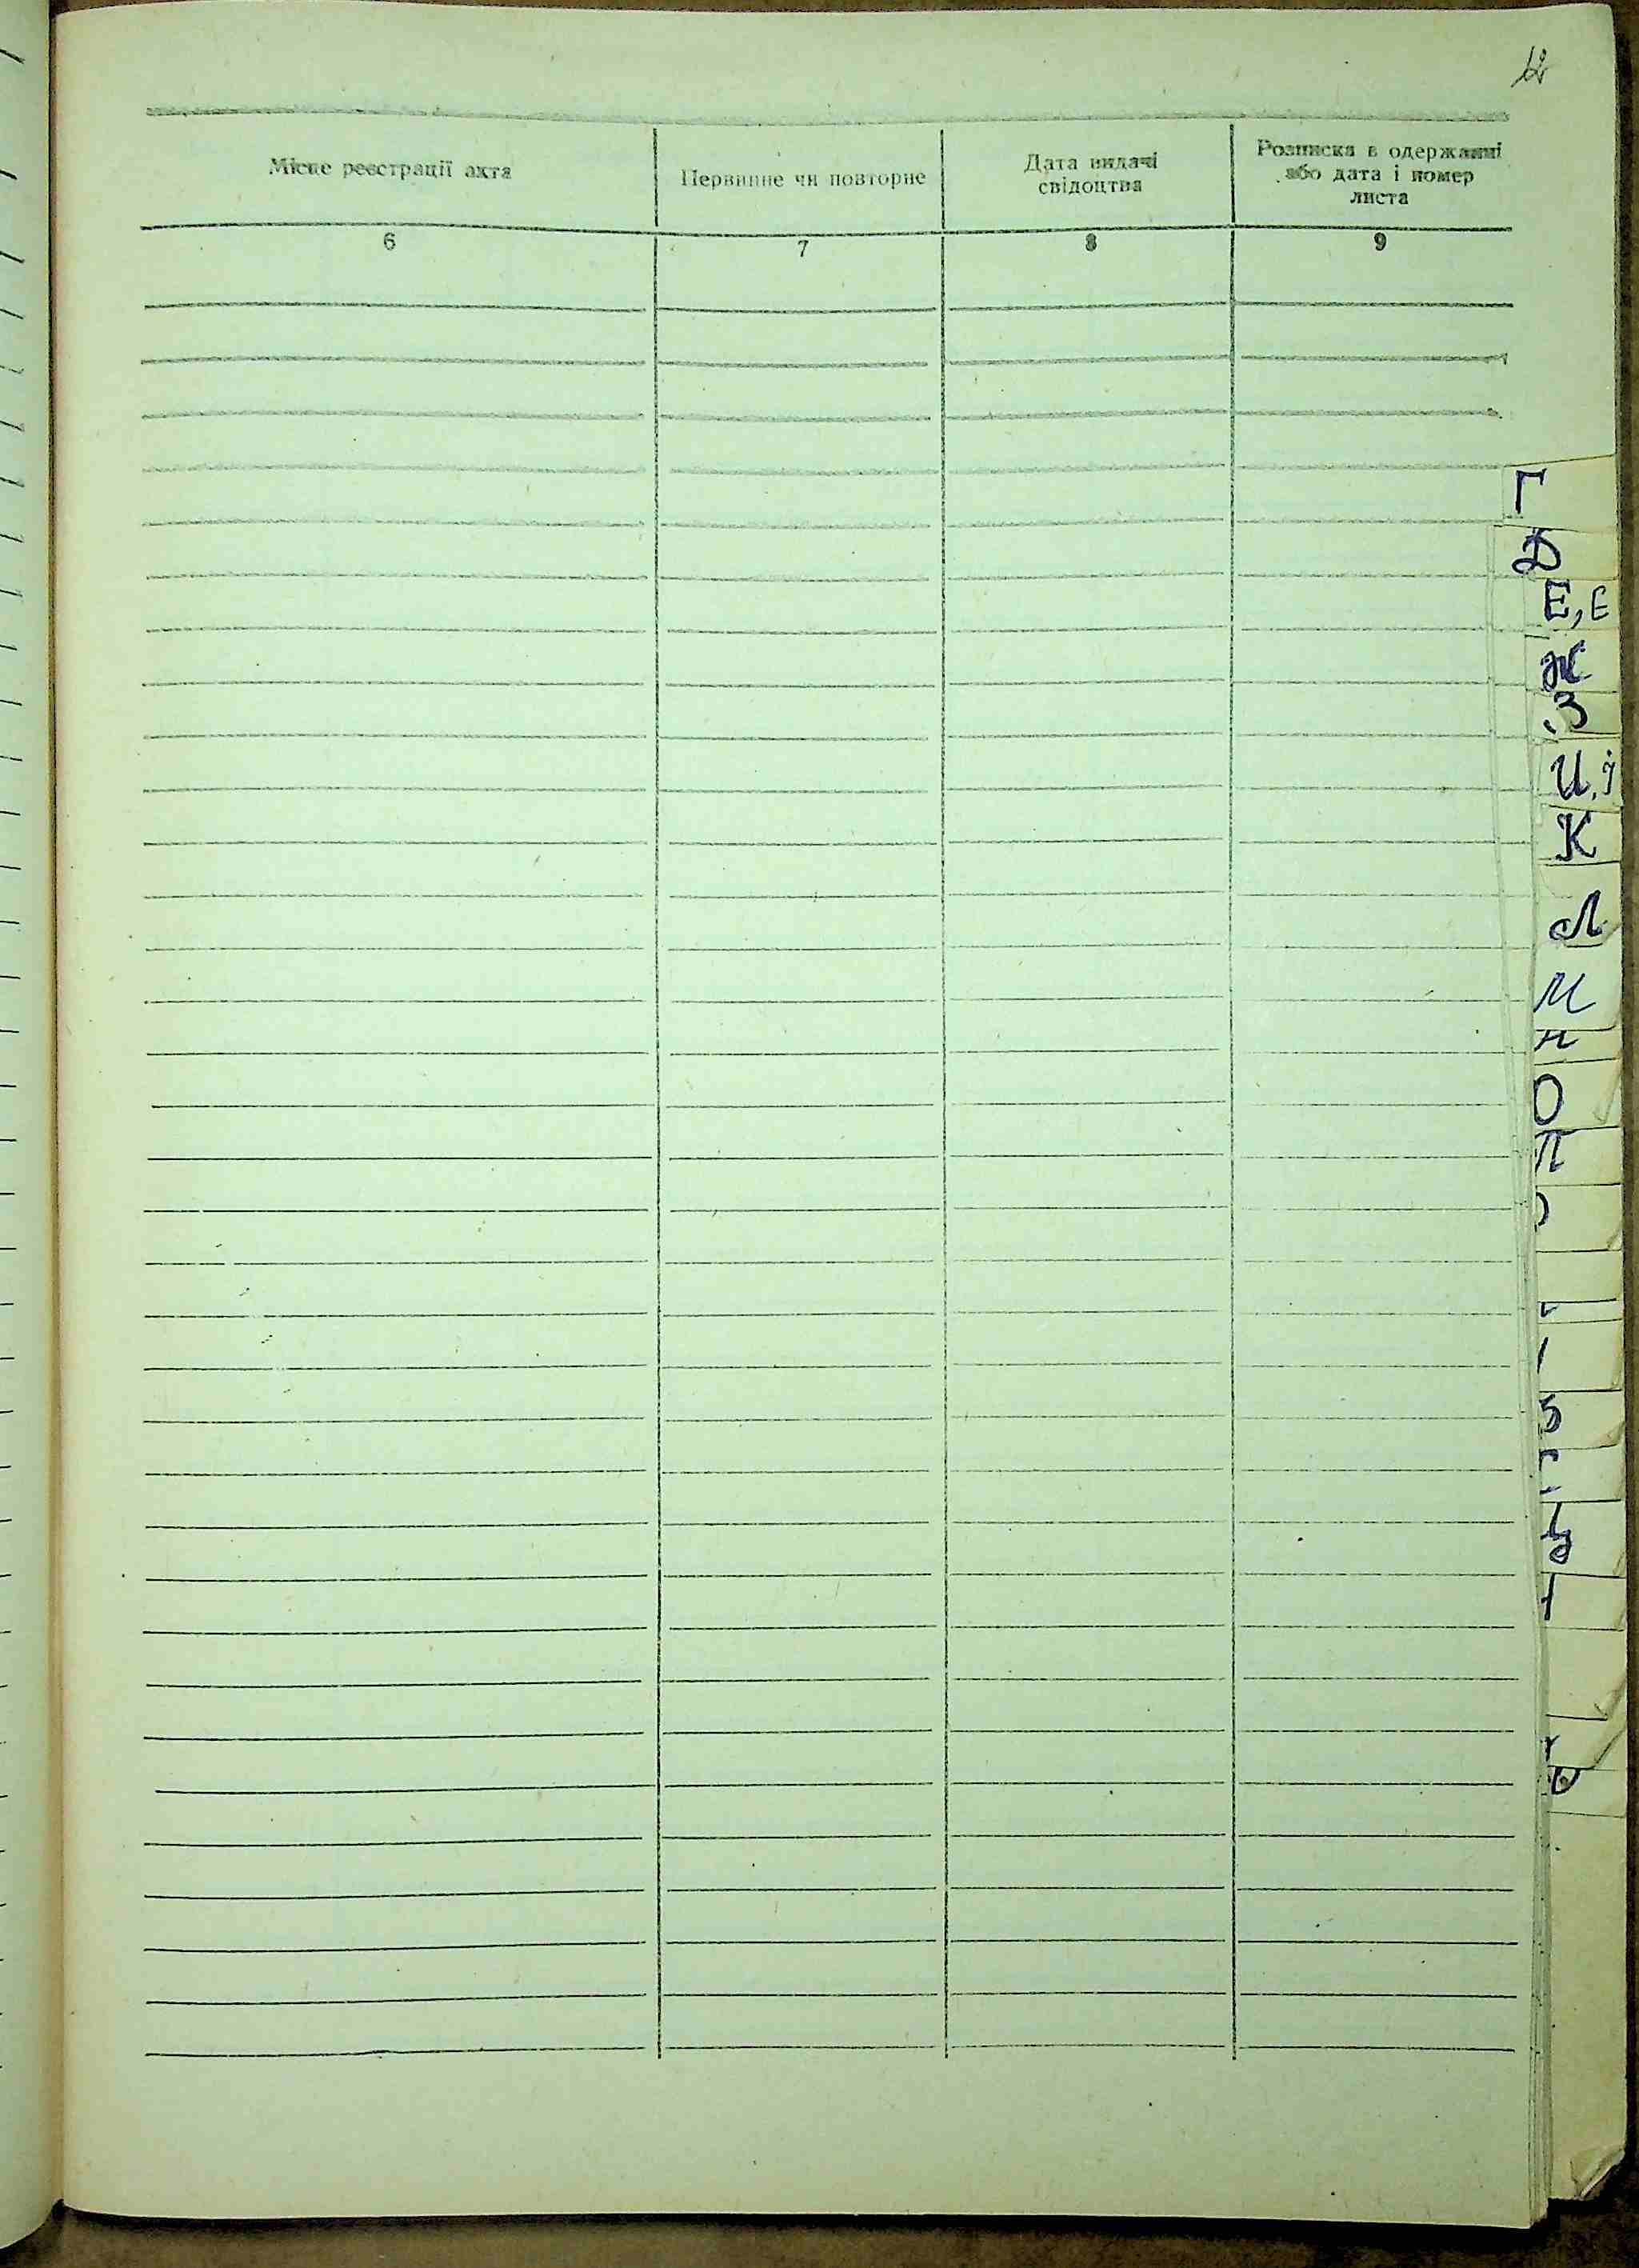 12
Місце реєстрації акта
Первинне чи повторне
Дата видачі
свідоцтва
Розписка в одержанні
або дата і номер
листа
6
7
8
9
Г
Д
Е, Є
Ж
З
И, І
К
Л
М
Н
О
П